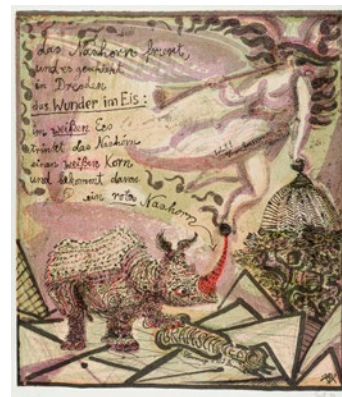 das Nashorn friert,
und es geschieht
in Dresden
das Wunder im Eis:
im weißen Eis
trinkt das Nashorn
einen weißen Korn
und bekommt davon
ein rotes Nashorn